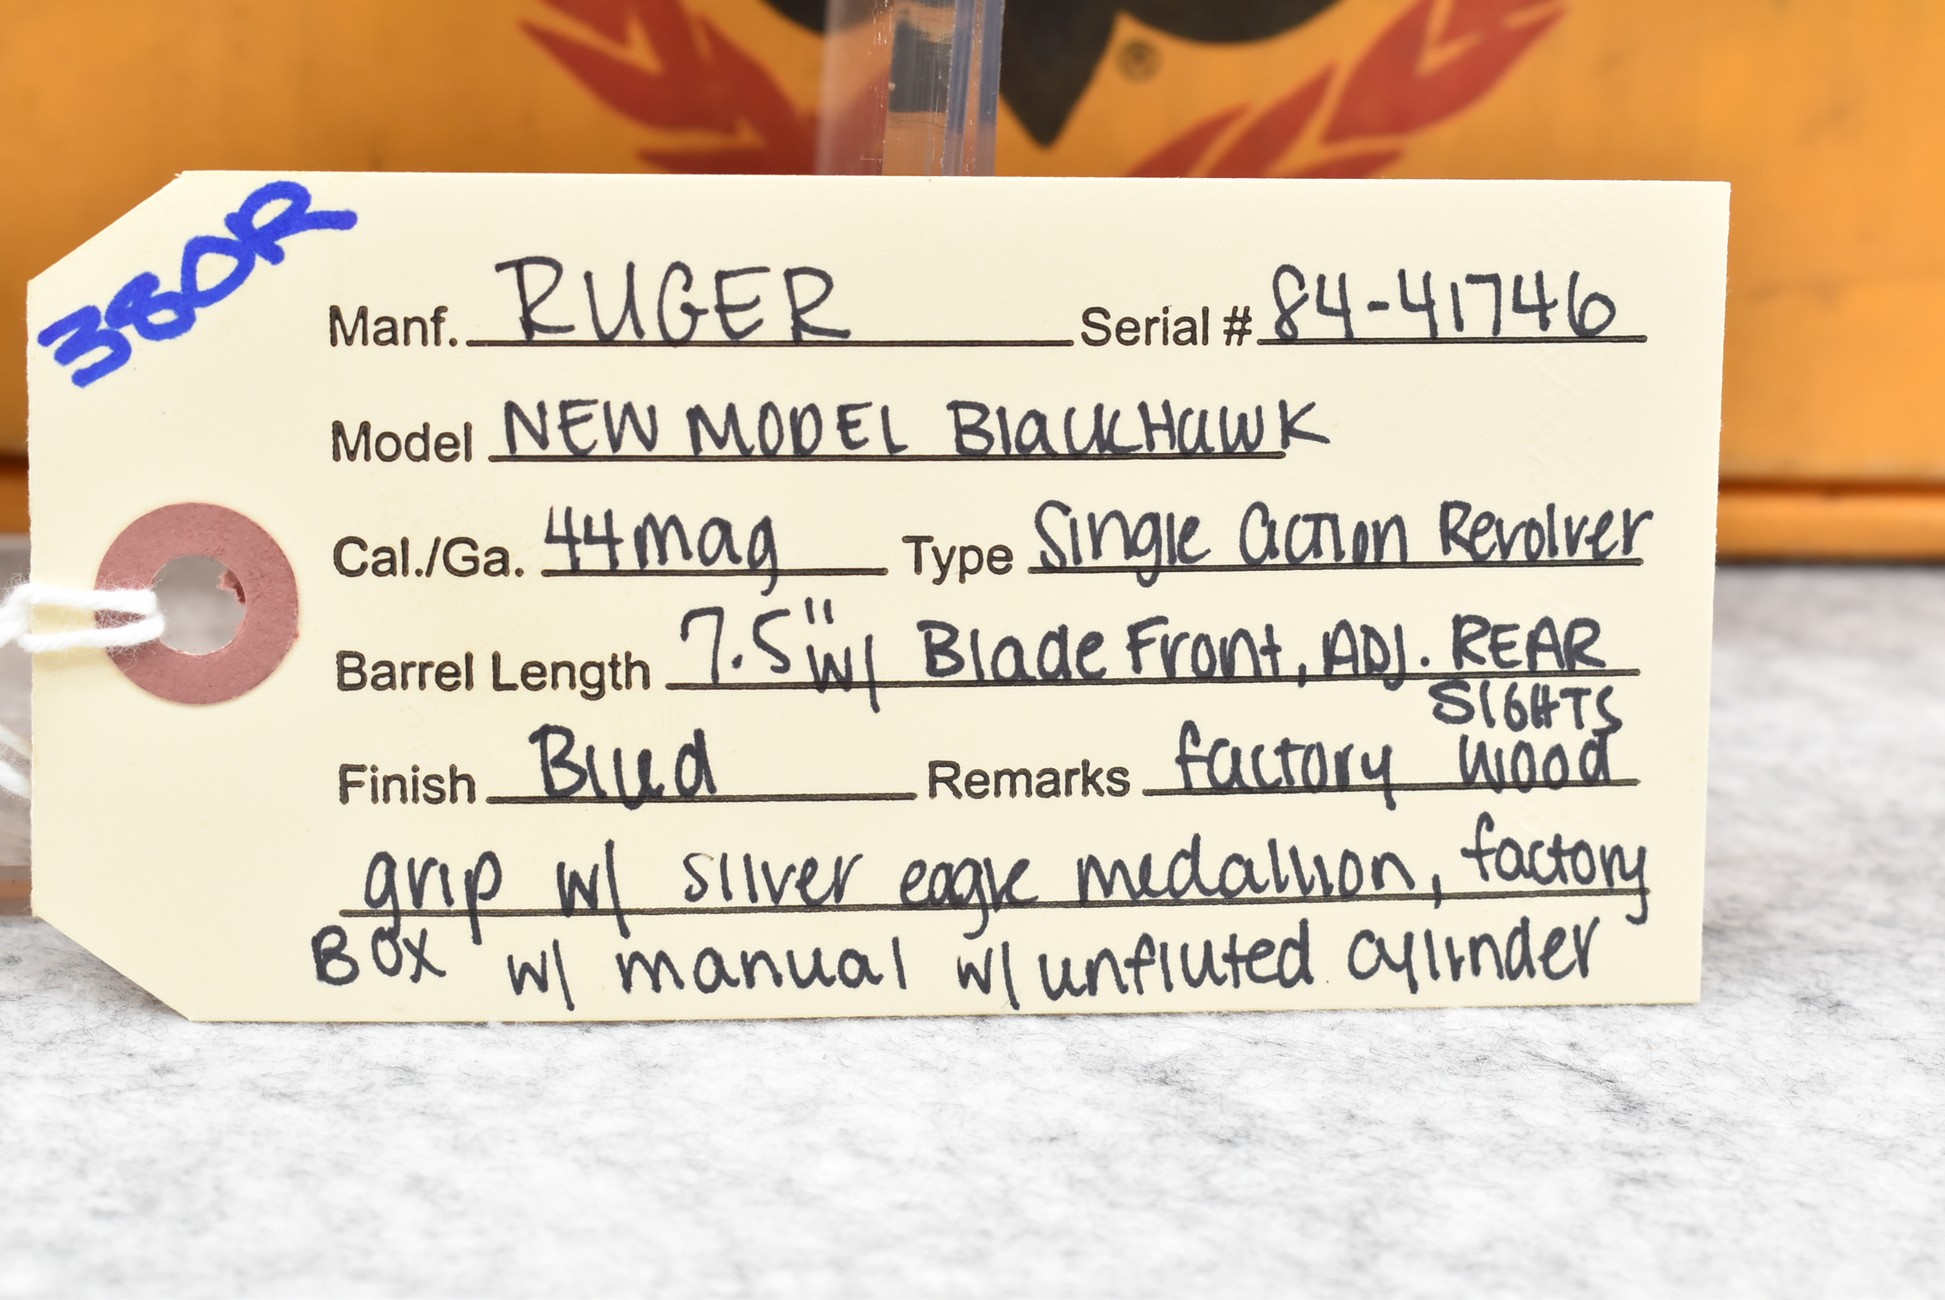 380R
Manf. RUGER Serial # 84-41746
Model NEW MODEL BlackHawk
Cal./Ga. 44mag Type Single action Revolver
Barrel Length 7.5" w/ Blade Front, ADJ. REAR
SIGHTS
Finish Blud Remarks factory wood
grip w/ silver eagle medallion, factory
BOX w/ manual w/ unfluted cylinder
®